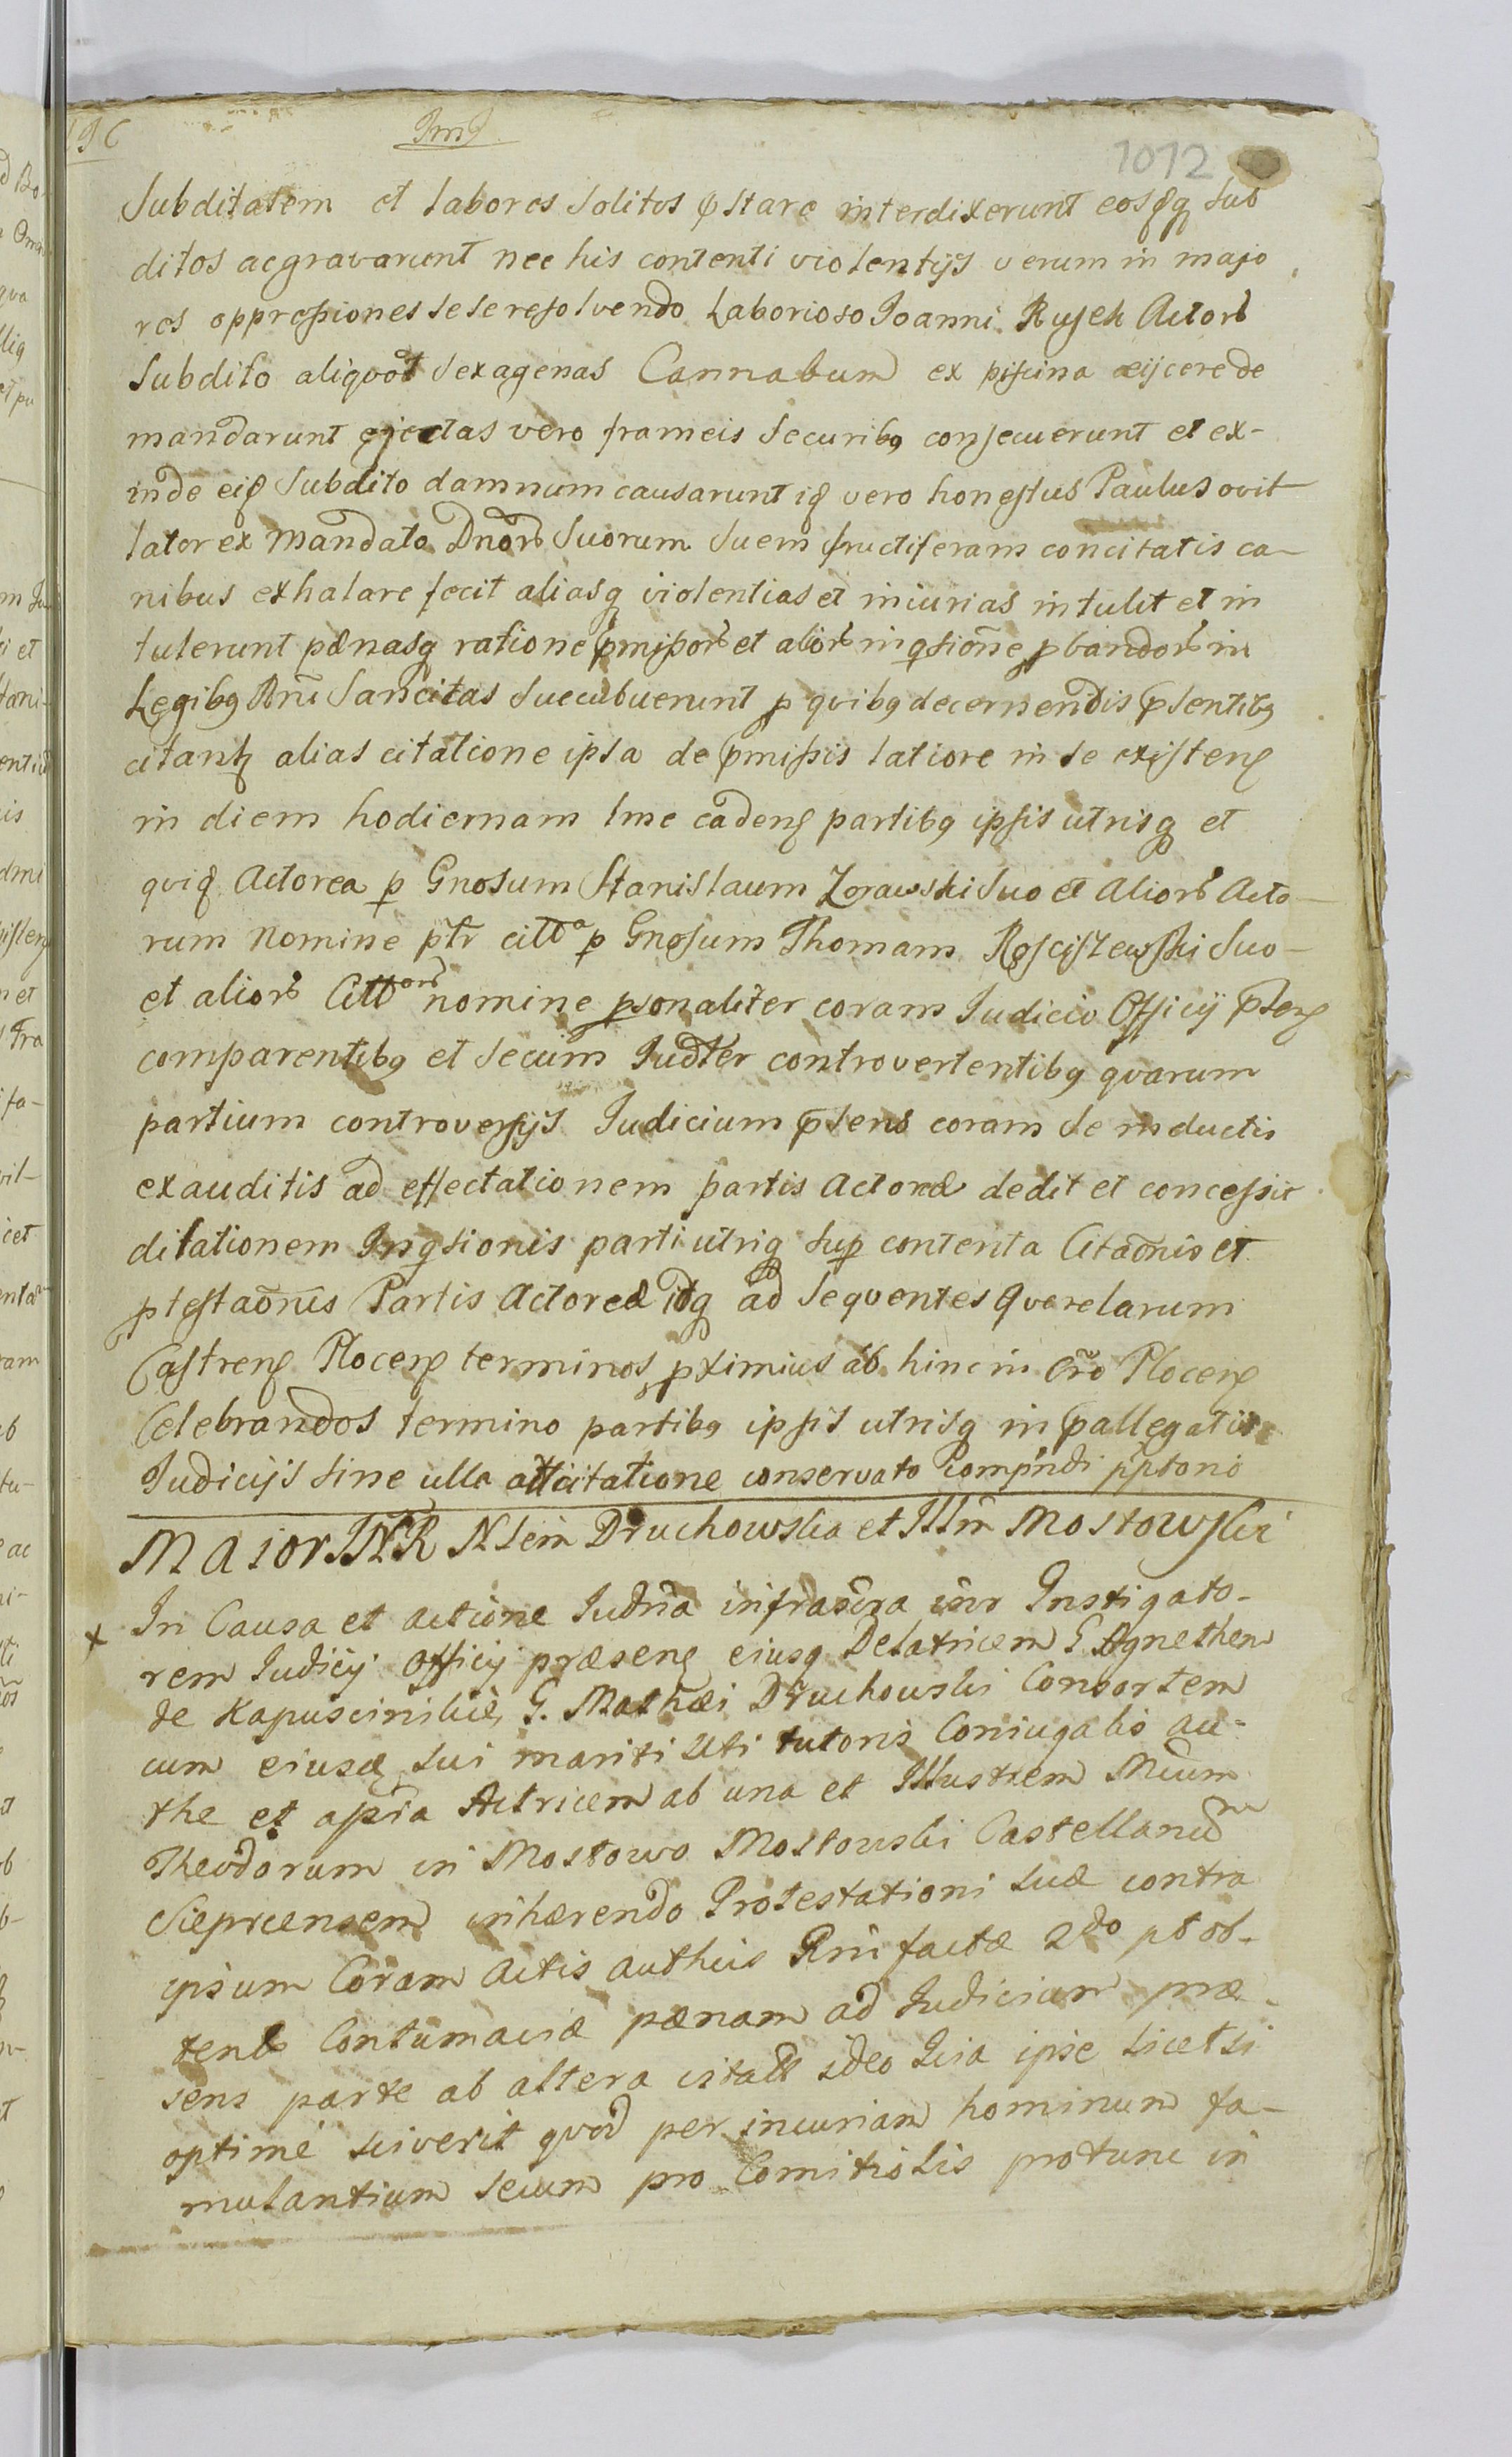 1012
Subditatem et labores solitos pstare interdixerunt eosqꝫ sub
ditos aggravarunt nec his contenti violentijs verum in majo
res oppressiones sese resolvendo Laborioso Joanni Actorꝝ
Subdito aliqvot sexagenas Cannabum ex piscina eijcere de
mandarunt ejectas vero frameis securibꝫ consecuerunt et ex-
inde eiꝫ subdito damnum causarunt iꝫ vero honestus Paulus ovit
lator ex Mandato Dnorꝝ Suorum Suem fructiferam concitatis ca-
nibus exhalare fecit aliasqꝫ violentias et iniurias intulit et in
tulerunt pænasqꝫ ratione pmissorꝝ et aliorꝝ in qstione pbandorꝝ in
Legibꝫ Rni Sancitas succubuerunt p qvibꝫ decernendis psentibꝫ
citantꝫ alias citatione ipsa de pmissis latiore in se existenꝭ
in diem hodiernam lme cadenꝭ partibꝫ ipsis utrisqꝫ et
qviꝫ Actorea p Gnosum Stanislaum Zorawski Suo et Aliorꝝ Acto-
rum Nomine citta p Gnosum Thomam Rosciszewski Suo-
et aliorꝝ Cittorꝝ nomine psonaliter coram Judicio Officij psenꝭ
comparentibꝫ et secum Judter controvertentibꝫ qvarum
partium controversijs Judicium psens coram se inductis
exauditis ad effectationem partis Actoreæ dedit et concessit
dilationem Inqstionis parti utriqꝫ sup contenta Citaonis et
ptestaonis Partis Actoreæ idqꝫ ad Seqventes Qverelarum
Castrenꝭ Plocenꝭ terminos pximius ab hinc in Cro Plocenꝭ
Celebrandos termino partibꝫ ipsis utrisqꝫ in pallegatis
Judicijs sine ulla attcitatione conservato
Maior INR Nsem Druchowska et Illm Mostowski
x In Causa et actione Judria infrascra inr Instigato-
rem Judicij Officij præsenꝭ eiusqꝫ Delatricem G. Agnethem
de G. Mathæi Druchowski Consortem
cum eiusdꝫ sui mariti Uti tutoris Coniugalis au-
the et Actricem ab una et Illustrem Mcum
Theodorum in Mostowo Mostowski Castellanum
Sieprcensem inhærendo Protestationi suæ contra
ipsum Coram Actis Rni factæ 2do pt ob-
tent Contumaciæ pænam ad Judicium præ-
sens parte ab altera citatt ideo Qvia ipse licet si
optime sciverit qvod per incuriam hominum fa-
mulantium secum pro Comitiolis protunc in